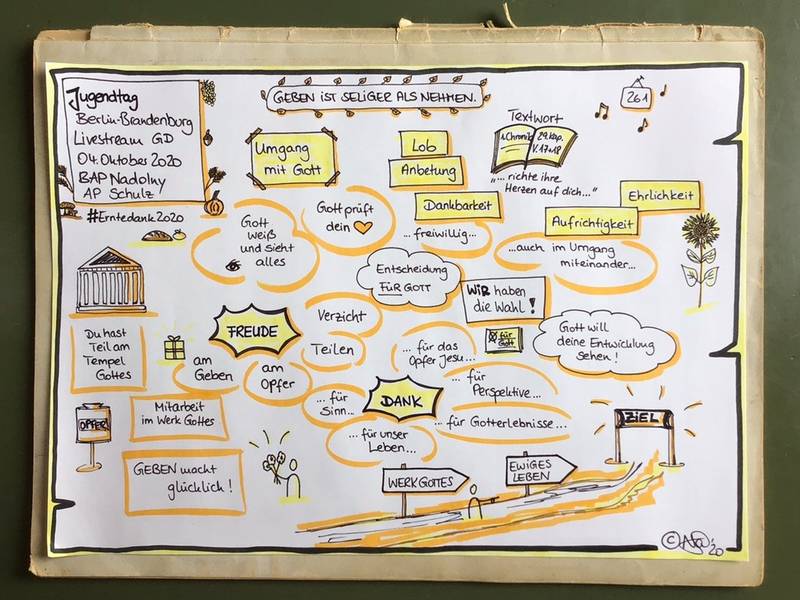 Jugendtag
Berlin-Brandenburg
Livestream GD
04. Oktober 2020
BAP Nadolny
AP Schulz
#Erntedank2020
GEBEN IST SELIGER ALS NEHMEN.
261
Umgang
mit Gott
Lob
Anbetung
Dankbarkeit
...freiwillig...
Textwort
1. Chronik
29. Kap.
V. 17+18
"... richte ihre
Herzen auf dich..."
Ehrlichkeit
Aufrichtigkeit
...auch im Umgang
miteinander...
Gott
weiß
und sieht
alles
Gott prüft
dein
Entscheidung
FÜR GOTT
WIR haben
die Wahl!
für
Gott
Gott will
deine Entwicklung
sehen!
Du hast
Teil am
Tempel
Gottes
FREUDE
am
Geben
am
Opfer
Verzicht
Teilen
DANK
...für das
Opfer Jesu...
...für
Perspektive...
...für
Sinn...
...für Gotterlebnisse...
...für unser
Leben...
OPFER
Mitarbeit
im Werk Gottes
GEBEN macht
glücklich!
WERK GOTTES
EWIGES
LEBEN
ZIEL
©
'20